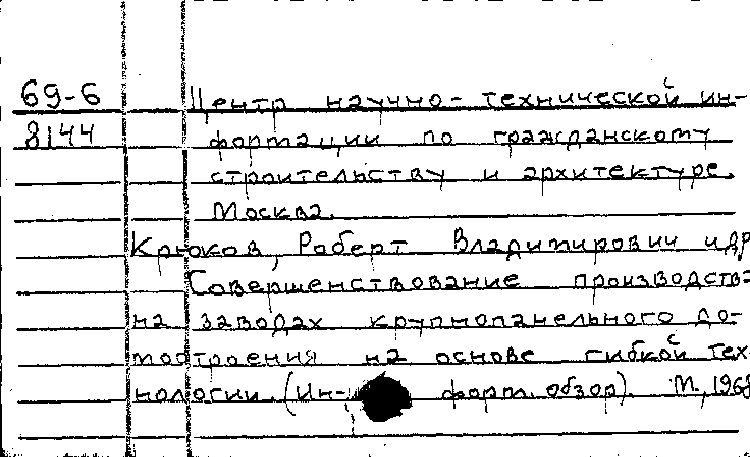 69-6 Центр научно-технической ин-
8144 формации по гражданскому
строительству и архитектуре.
Москва.
Крюков, Роберт Владимирович и др
Совершенствование производства
на заводах крупнопанельного до-
мостроения на основе гибкой тех-
нологии. (Ин- форм. обзор). М., 1968